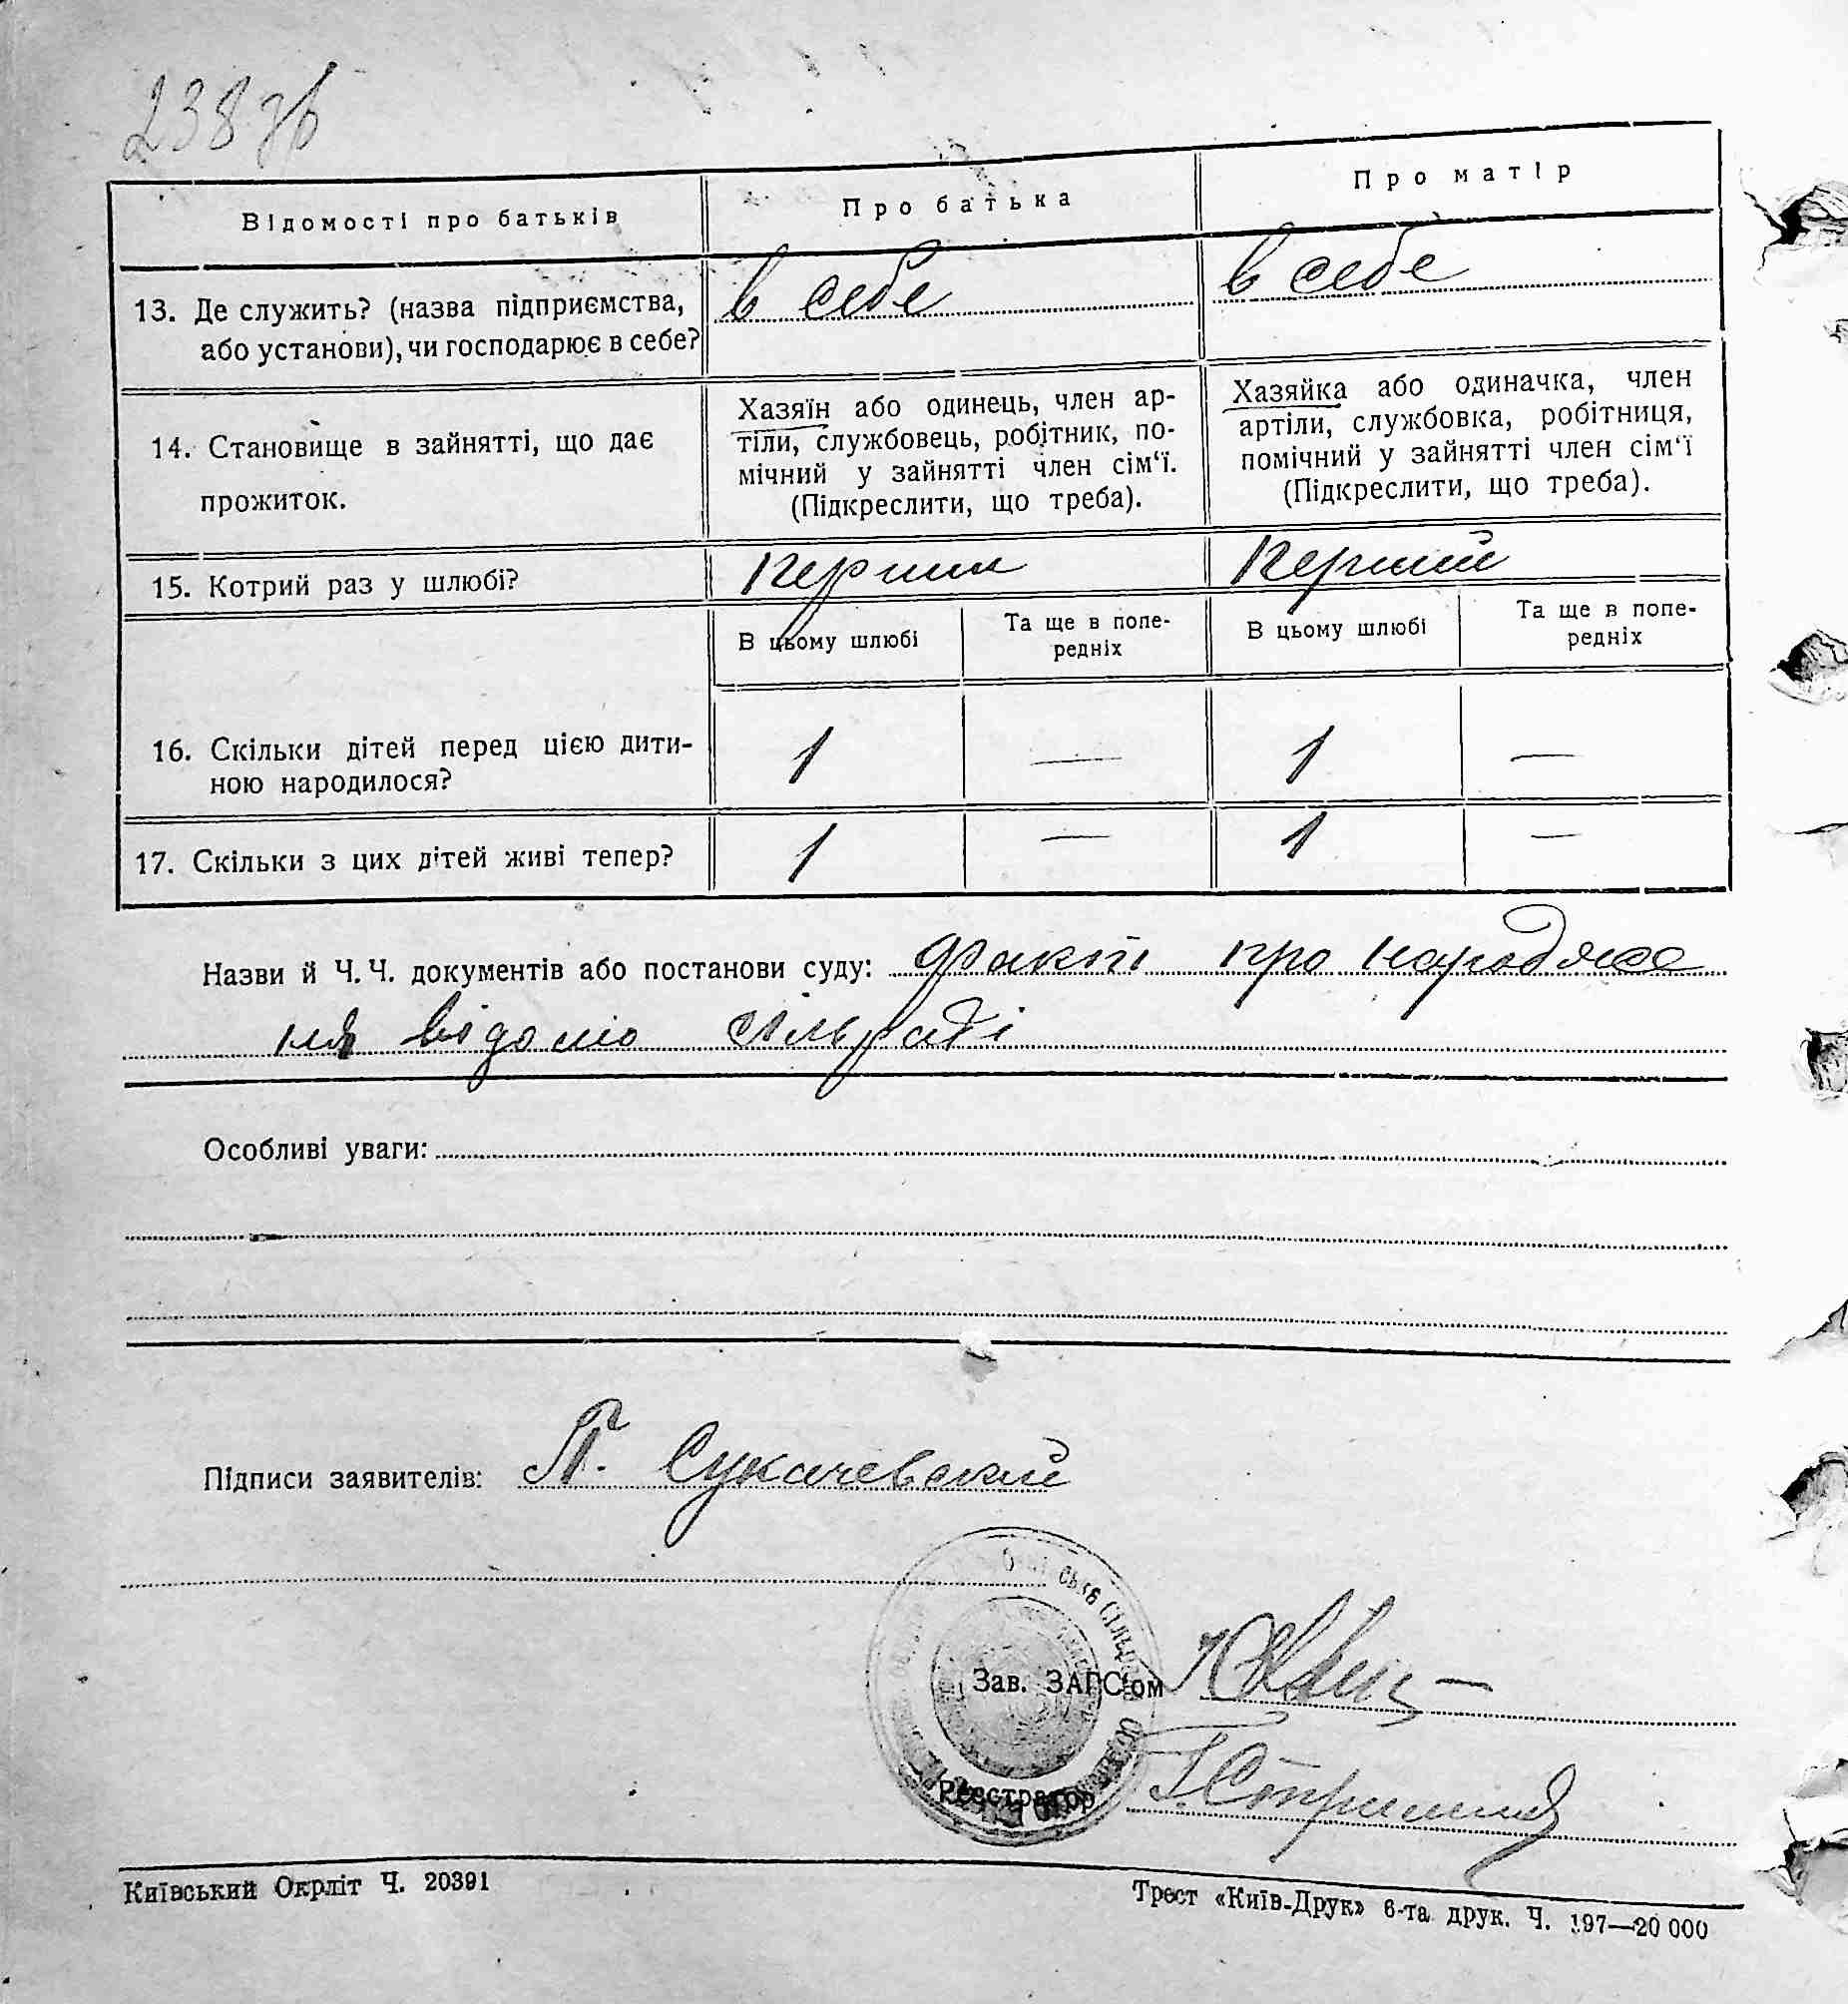 238 зв
Відомості про батьків
Про батька
Про матір
13. Де служить? (назва підприємства,
або установи), чи господарює в себе?
в себе
в себе
14. Становище в зайнятті, що дає
прожиток.
Хазяїн або одинець, член ар-
тіли, службовець, робітник, по-
мічний у зайнятті член сім‘ї.
(Підкреслити, що треба).
Хазяйка або одиначка, член
артіли, службовка, робітниця,
помічний у зайнятті член сім‘ї
(Підкреслити, що треба).
15. Котрий раз у шлюбі?
Перший
Перший
В цьому шлюбі
Та ще в попе-
редніх
В цьому шлюбі
Та ще в попе-
редніх
16. Скільки дітей перед цією дити-
ною народилося?
1 — 1 —
17. Скільки з цих дітей живі тепер?
1 — 1 —
Назви й Ч. Ч. документів або постанови суду: Факт про народжен
ня відомо сільраді
Особливі уваги:
Підписи заявителів: П. Сукачевский
Зав. ЗАГС'ом
Реєстратор
Київський Окрліт Ч. 20391
Трест «Київ-Друк» 6-та друк. Ч. 197—20 000